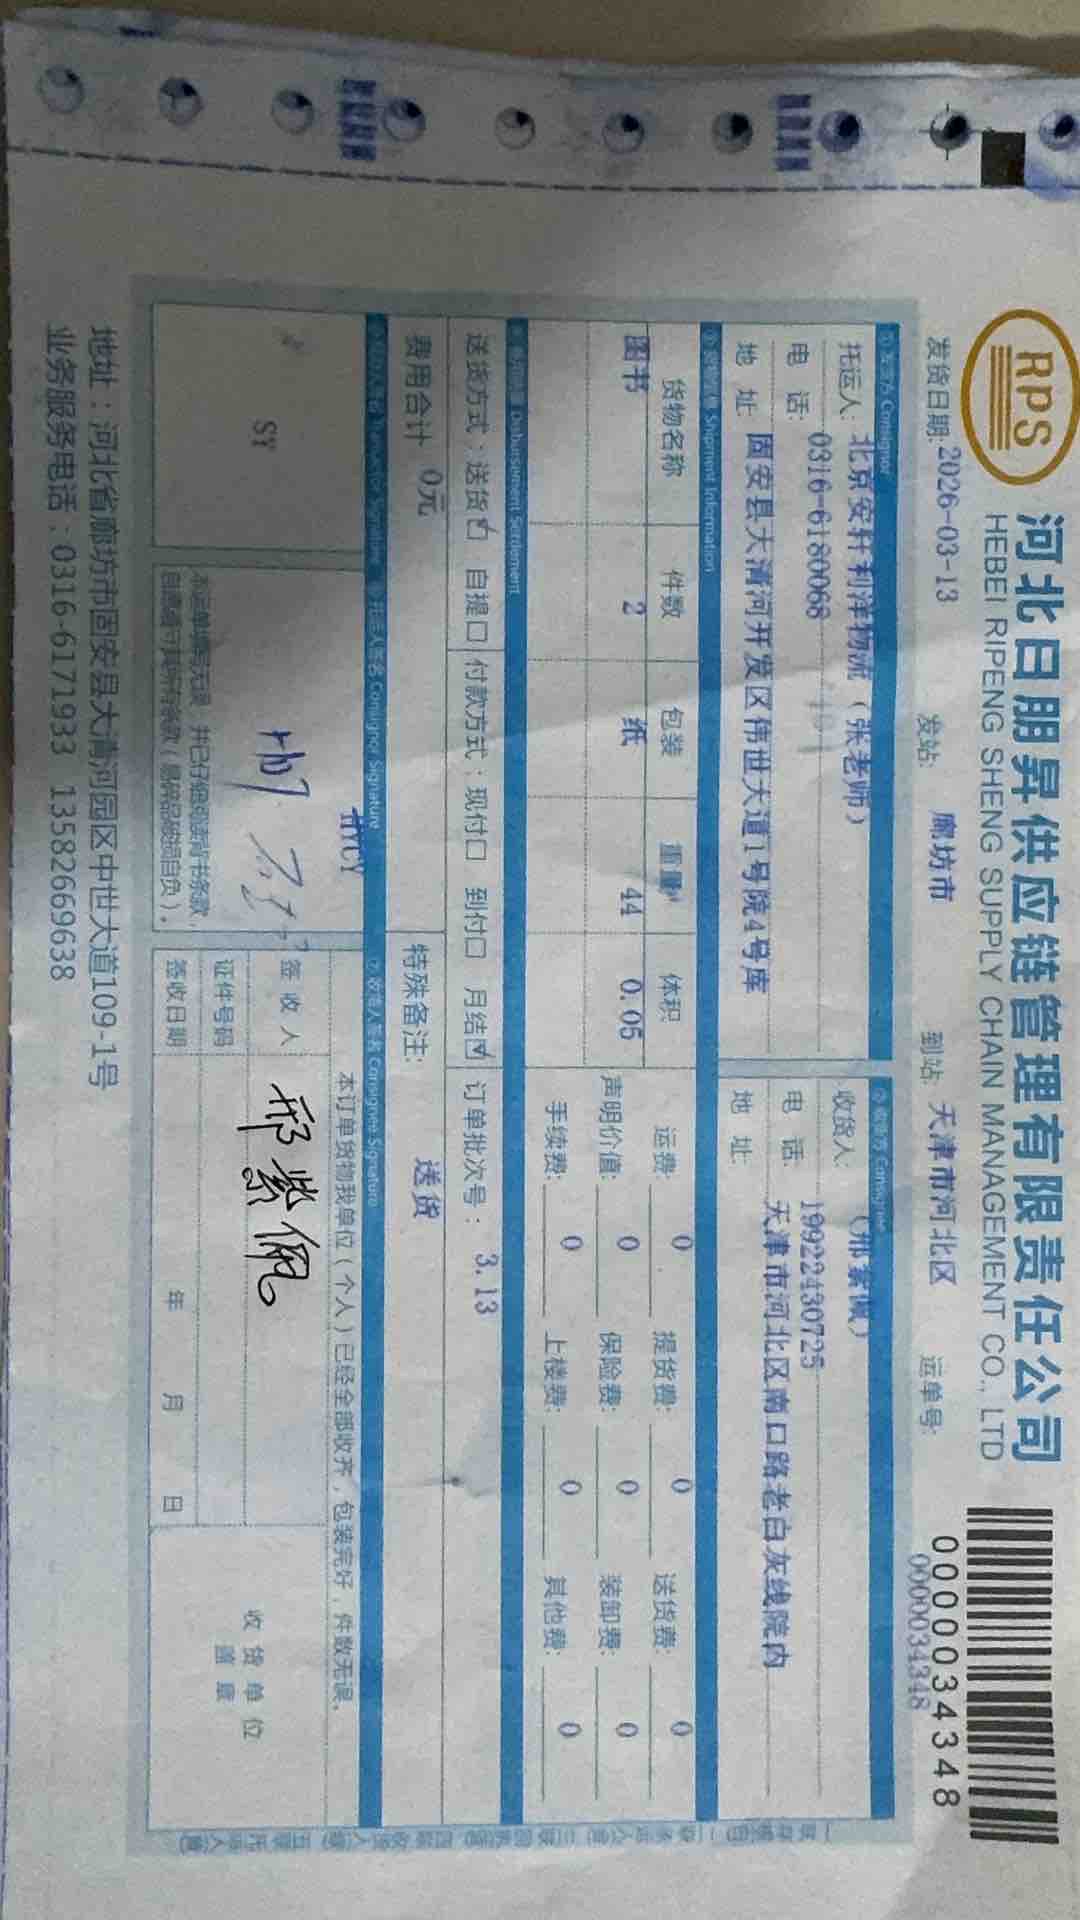 RPS
河北日朋昇供应链管理有限责任公司
HEBEI RIPENG SHENG SUPPLY CHAIN MANAGEMENT CO., LTD
0000034348
0000034348
发货日期: 2026-03-13 发站: 廊坊市 到站: 天津市河北区 运单号:
① 发货方 Consignor ② 收货方 Consignee
托运人: 北京安轩利洋物流（张老师）
电 话: 0316-6180068
地 址: 固安县大清河开发区伟世大道1号院4号库
收货人: （邢紫佩）
电 话: 19922430725
地 址: 天津市河北区南口路老白灰线院内
Shipment Information
货物名称 件数 包装 重量 体积
图书 2 纸 44 0.05
运费: 0 提货费: 0 送货费: 0
声明价值: 0 保险费: 0 装卸费: 0
手续费: 0 上楼费: 0 其他费: 0
Disbursement Settlement
送货方式：送货☑ 自提口 付款方式：现付口 到付口 月结☑ 订单批次号： 3.13
费用合计 0元 特殊备注: 送货
托运人签名 Consignor Signature ⑦ 收货人签名 Consignee Signature
HYCY
SY
本订单货物我单位（个人）已经全部收齐，包装完好，件数无误。
签收人 邢紫佩
证件号码
签收日期 年 月 日
收货单位
盖章
地址：河北省廊坊市固安县大清河园区中世大道109-1号
业务服务电话：0316-6171933 13582669638